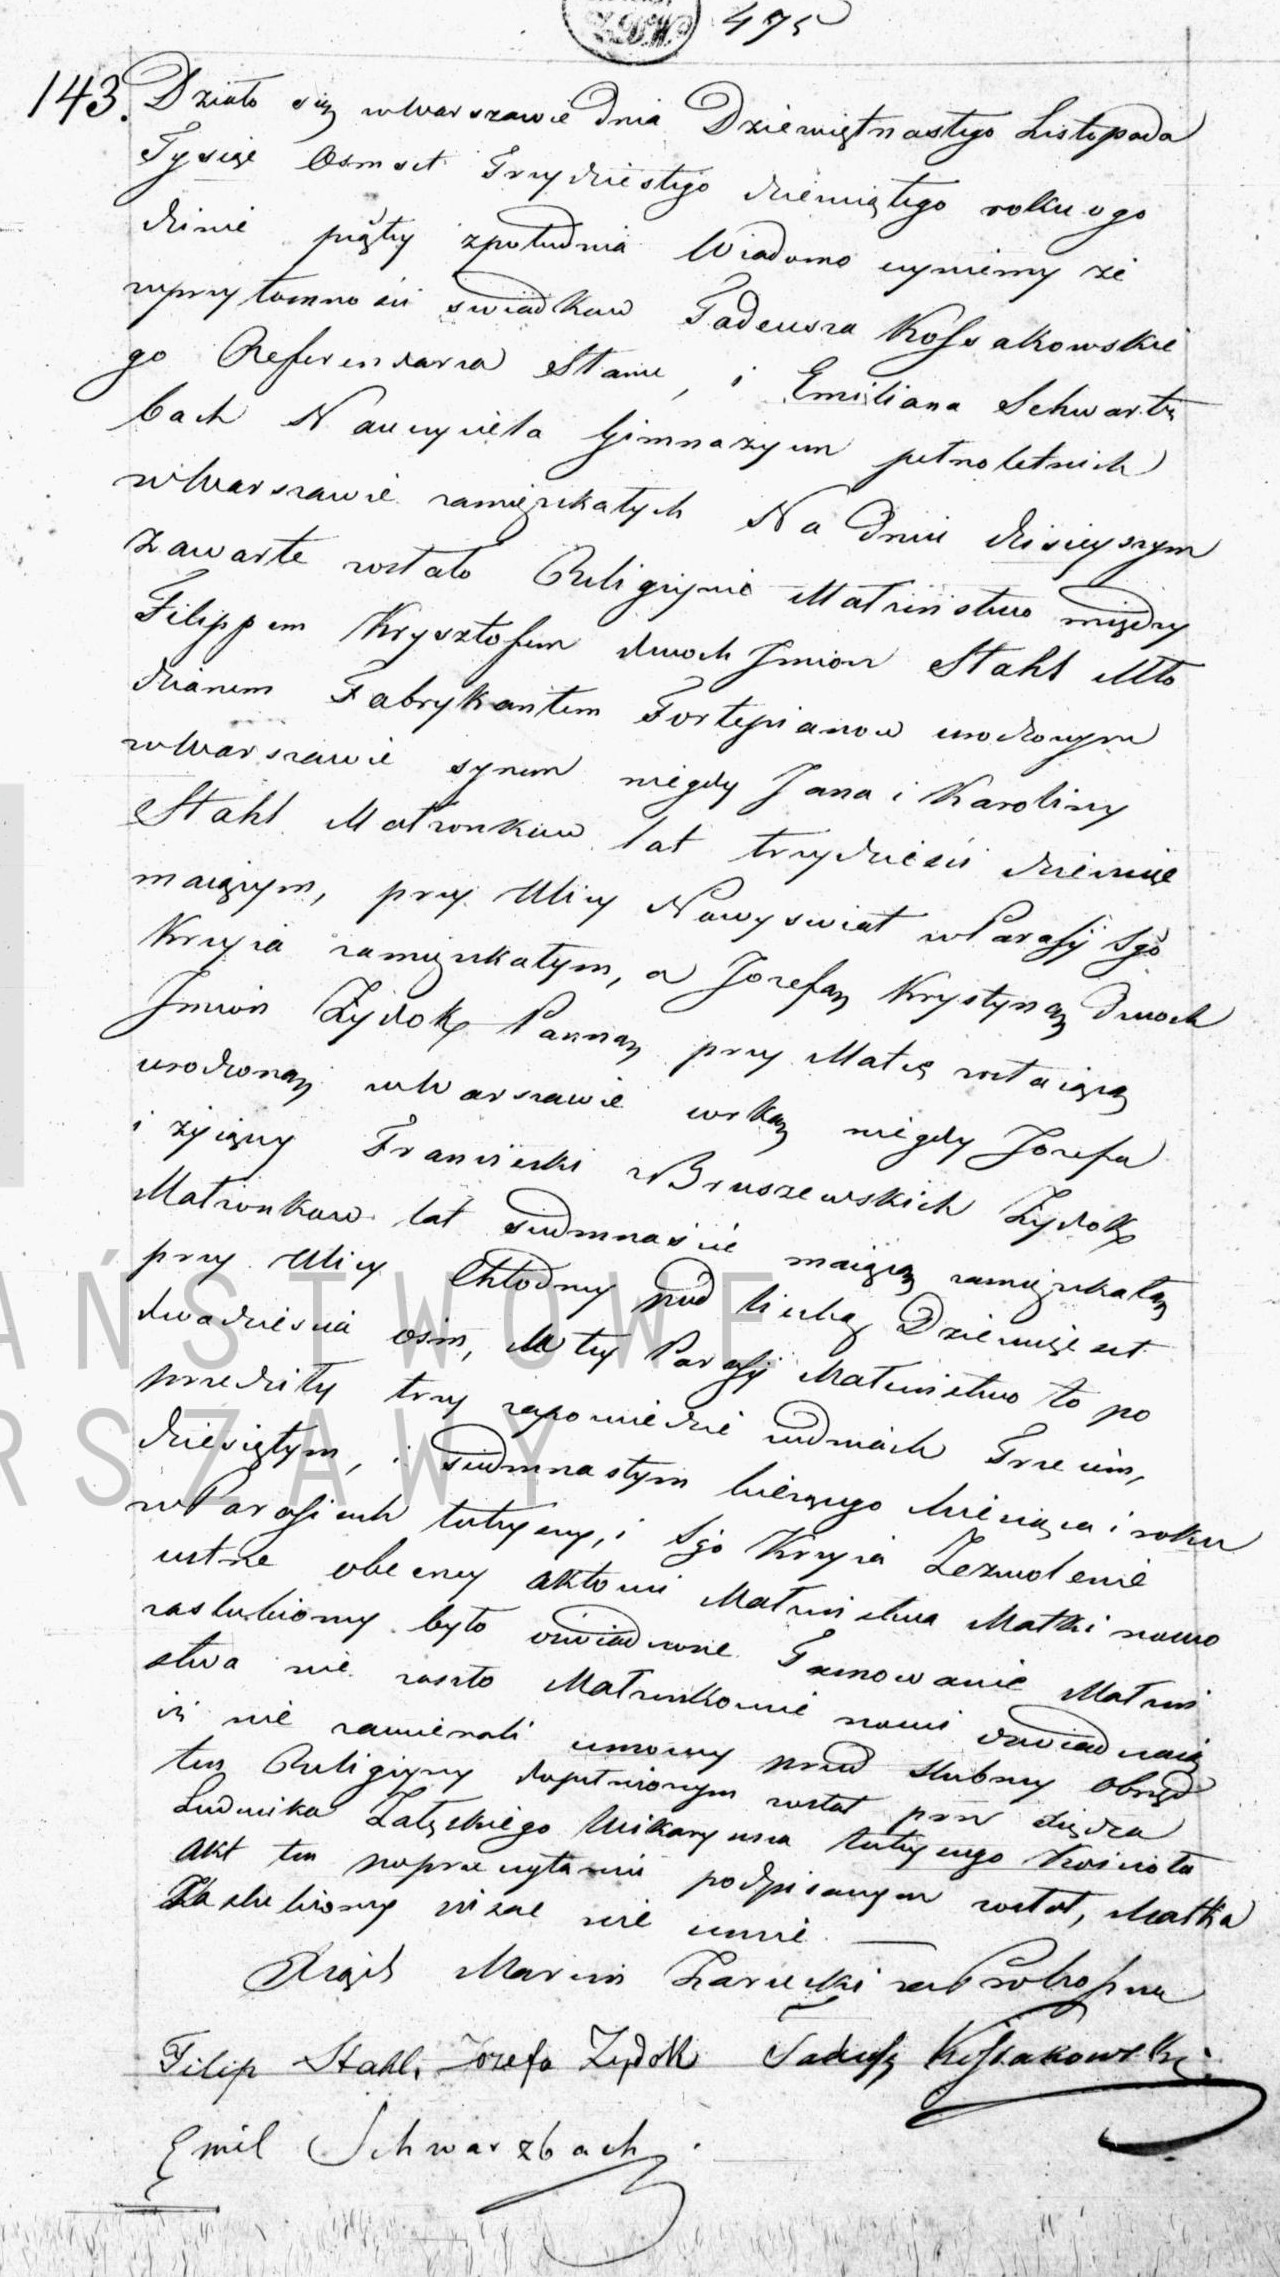 475
143. Działo się w Warszawie Dnia Dziewiętnastego Listopada
Tysiąc Osmset Trzydziestego dziewiątego roku o go
dzinie piątej z południa Wiadomo czyniemy że
w przytomności swiadkow Tadeusza Kossakowskie
go Referendarza Stanu, i Emiliana Schwartz
bach Nauczyciela Gimnazyum pełnoletnich
w Warszawie zamięszkałych Na dniu dzisieyszym
zawarte zostało Religijnie Małżeństwo między
Filippem Krysztofem dwoch Jmion Stahl Mło
dzianem Fabrykantem Fortepianow urodzonym
w Warszawie synem niegdy Jana i Karoliny
Stahl Małżonkow lat trzydzieści dziewięc
maiącym, przy Ulicy Nowy swiat w Parafij Sgo
Krzyża zamięszkałym, a Jozefą Krystyną dwoch
Jmion Żydok Panną przy Matce zostaiącą
urodzoną w Warszawie corką niegdy Jozefa
i żyiącey Franciszki z Bruszewskich Żydok
Małżonkow lat siedmnaście maiącą zamięszkałą
przy Ulicy Chłodney pod liczbą Dziewięcset
dwadzieścia osm, W tey Parafij Małżeństwo to po
przedziły trzy zapowiedzie w dniach Trzecim,
dziesiątym, i siedmnastym bieżącego Miesiąca i roku
w Parafiach tuteyszey, i Sgo Krzyża Zezwolenie
ustne obecney aktowi Małżeństwa Matki nowo
zaslubioney było oświadczone Tamowanie Małżeń
stwa nie zaszło Małżonkowie nowi oswiadczaią
iż nie zawierali umowy przed slubney Obrzęd
ten Religijny dopełnionym został przez Xiędza
Ludwika Załęskiego Wikaryusza tuteyszego Kościoła
Akt ten po przeczytaniu podpisanym został, Matka
Zaslubioney pisac nie umie.
Xiądz Marcin Zarucki za Proboszcza
Filip Stahl, Jozefa Żydok Tadeusz Kossakowski
Emil Schwarzbach.
AŃSTWOWE
RSZAWY